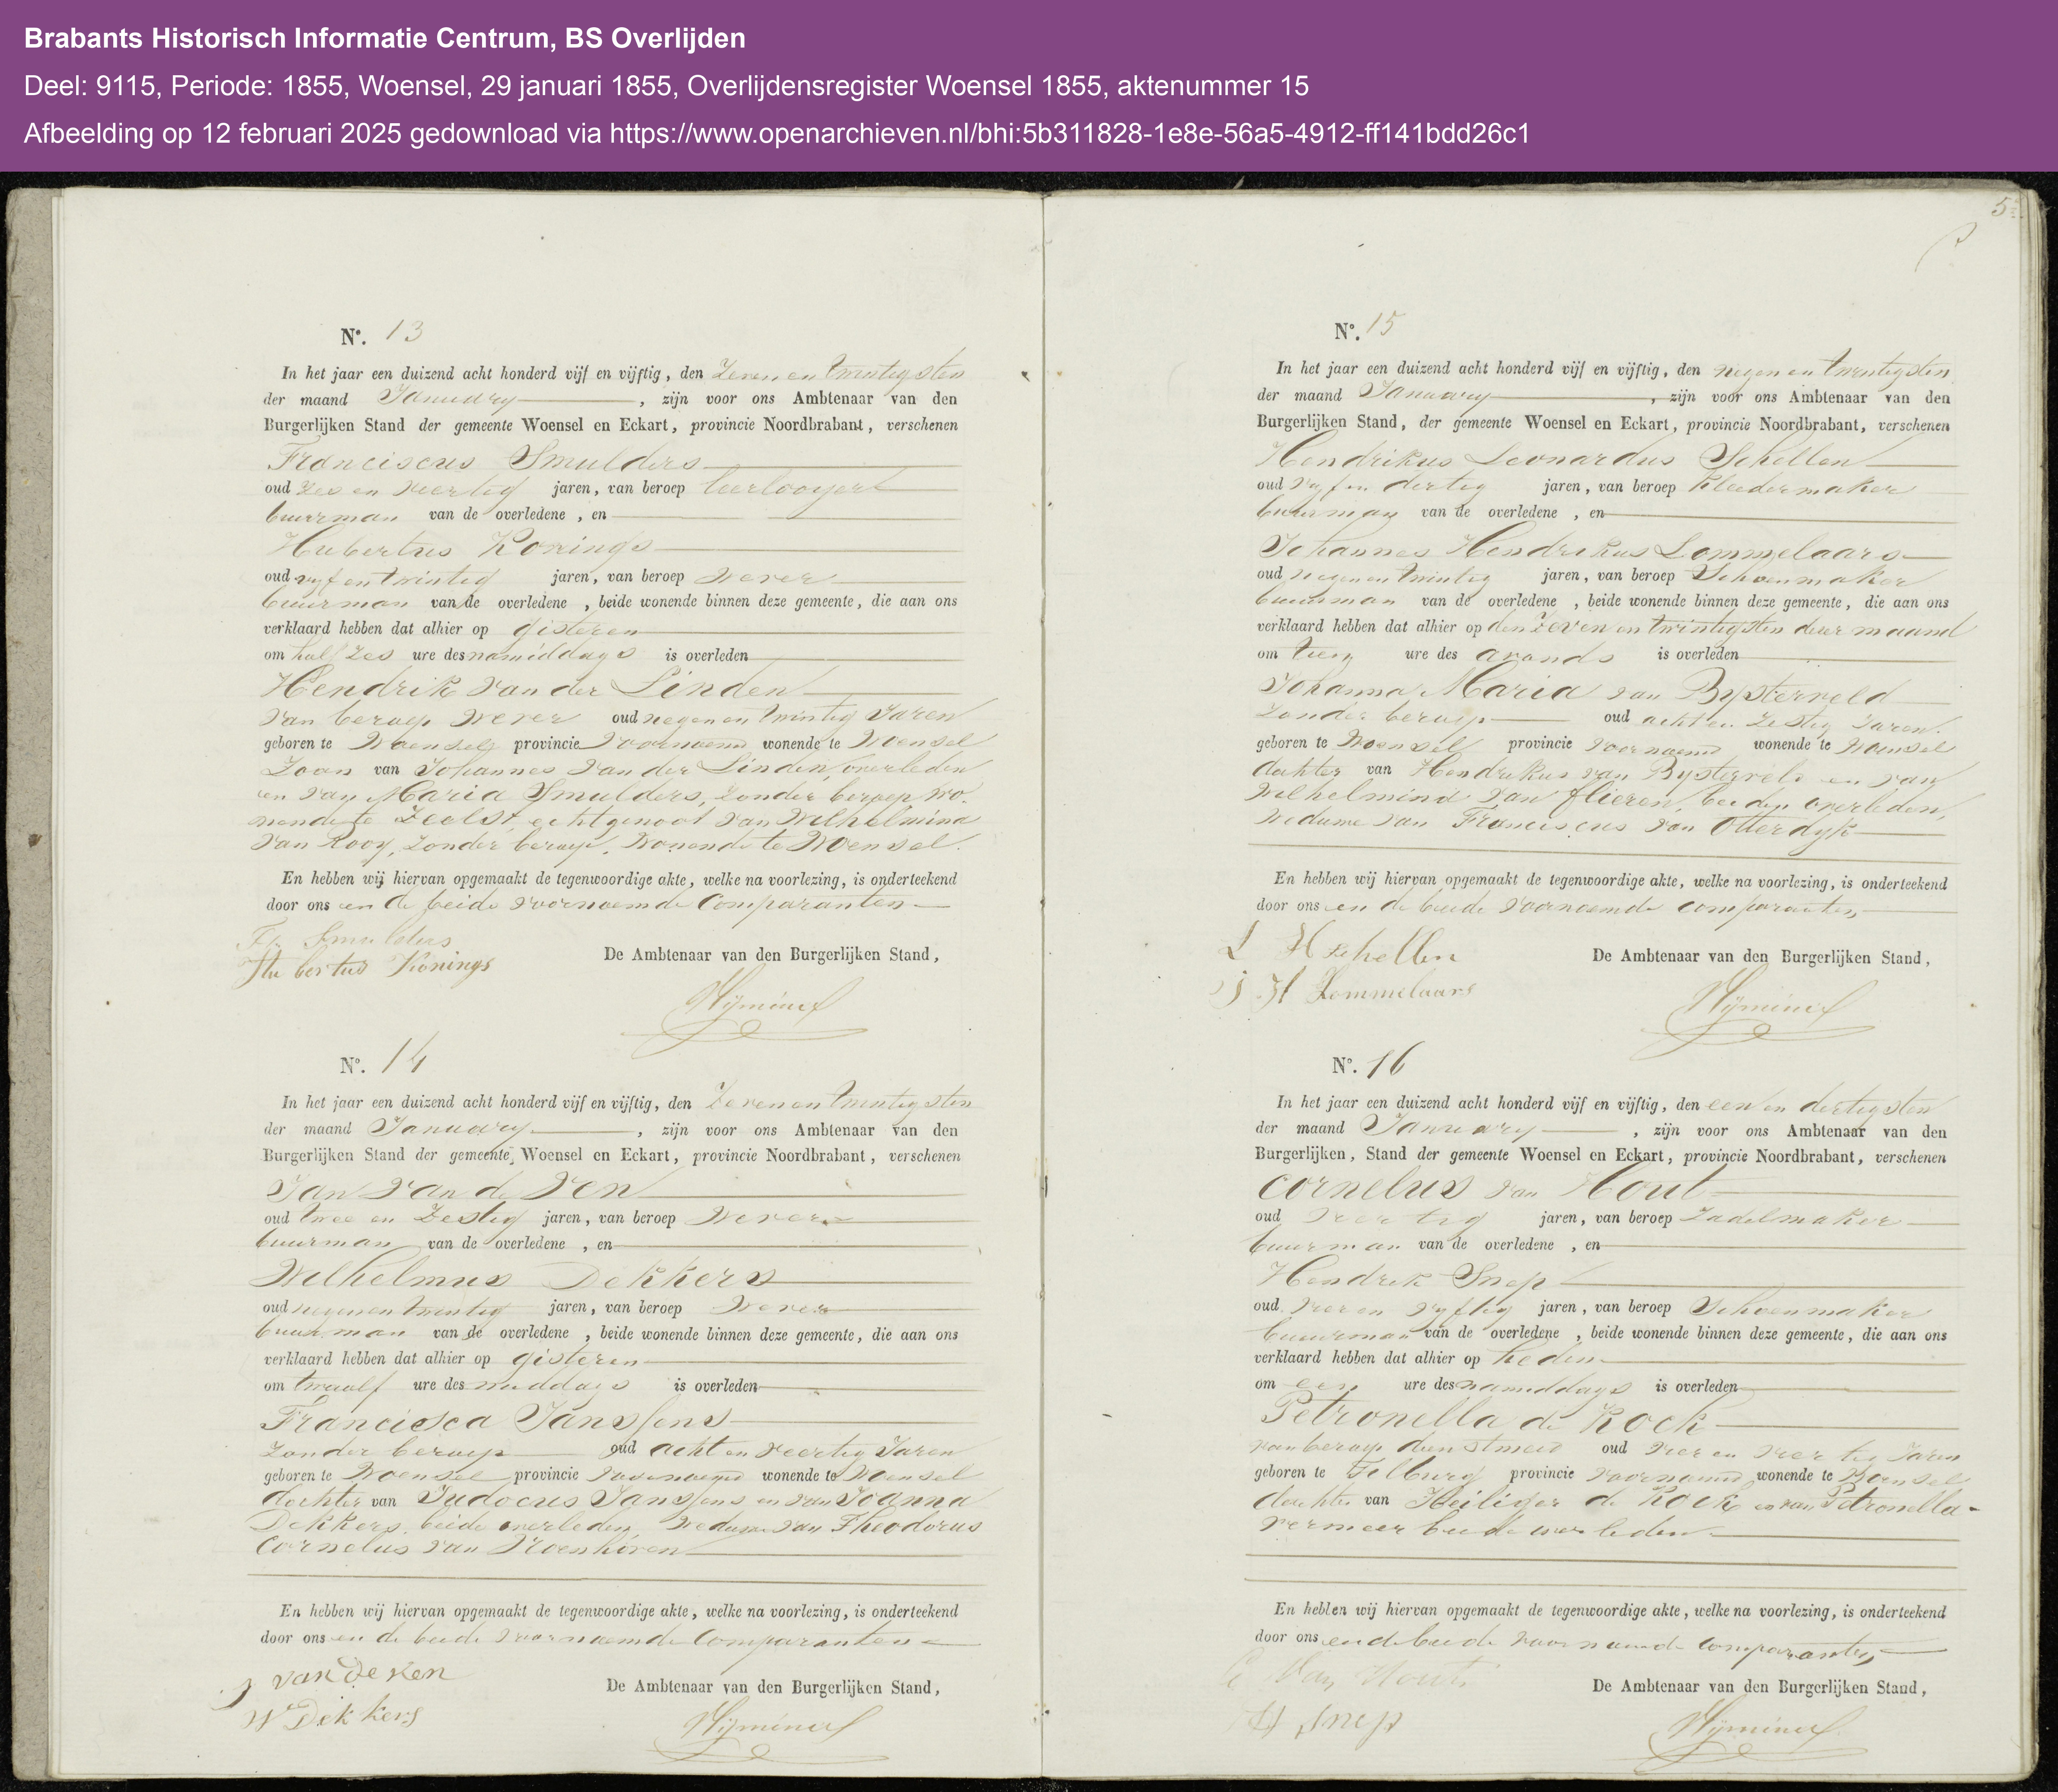 Brabants Historisch Informatie Centrum, BS Overlijden
Deel: 9115, Periode: 1855, Woensel, 29 januari 1855, Overlijdensregister Woensel 1855, aktenummer 15
Afbeelding op 12 februari 2025 gedownload via https://www.openarchieven.nl/bhi:5b311828-1e8e-56a5-4912-ff141bdd26c1
No. 13
In het jaar een duizend acht honderd vijf en vijftig, den Zeven en twintigsten
der maand January, zijn voor ons Ambtenaar van den
Burgerlijken Stand der gemeente Woensel en Eckart, provincie Noordbrabant, verschenen
Franciscus Smulders
oud zes en veertig jaren, van beroep leerlooyer
buurman van de overledene, en
Hubertus Konings
oud vyf en twintig jaren, van beroep wever
buurman van de overledene, beide wonende binnen deze gemeente, die aan ons
verklaard hebben dat alhier op gisteren
om half zes ure des namiddags is overleden
Hendrik van der Linden
van beroep wever oud negen en twintig Jaren
geboren te Woensel provincie voornoemd wonende te Woensel
Zoon van Johannes van der Linden, overleden
en van Maria Smulders, zonder beroep wo-
nende te Zeelst, echtgenoot van Wilhelmina
van Rooy, zonder beroep, wonende te Woensel.
En hebben wij hiervan opgemaakt de tegenwoordige akte, welke na voorlezing, is onderteekend
door ons en de beide voornoemde Comparanten
Fr. Smulders
Hubertus Konings
De Ambtenaar van den Burgerlijken Stand,
No. 14
In het jaar een duizend acht honderd vijf en vijftig, den Zeven en twintigsten
der maand January, zijn voor ons Ambtenaar van den
Burgerlijken Stand der gemeente, Woensel en Eckart, provincie Noordbrabant, verschenen
Jan van de Ven
oud twee en Zestig jaren, van beroep Wever
buurman van de overledene, en
Wilhelmus Dekkers
oud negen en twintig jaren, van beroep Wever
buurman van de overledene, beide wonende binnen deze gemeente, die aan ons
verklaard hebben dat alhier op gisteren
om twaalf ure des middags is overleden
Francisca Janssens
Zonder beroep oud acht en veertig Jaren
geboren te Woensel provincie voornoemd wonende te Woensel
dochter van Judocus Janssens en van Joanna
Dekkers, beide overleden, Weduwe van Theodorus
Cornelus van
En hebben wij hiervan opgemaakt de tegenwoordige akte, welke na voorlezing, is onderteekend
door ons en de beide voornoemde Comparanten
J van de Ven
W Dekkers
De Ambtenaar van den Burgerlijken Stand,
5
No. 15
In het jaar een duizend acht honderd vijf en vijftig, den negen en twintigsten
der maand January, zijn voor ons Ambtenaar van den
Burgerlijken Stand, der gemeente Woensel en Eckart, provincie Noordbrabant, verschenen
Hendrikus Leonardus Schellen
oud vyf en dertig jaren, van beroep kleedermaker
buurman van de overledene, en
Johannes Hendrikus Lommelaars
oud negen en twintig jaren, van beroep Schoenmaker
buurman van de overledene, beide wonende binnen deze gemeente, die aan ons
verklaard hebben dat alhier op den Zeven en twintigsten dezer maand
om tien ure des avonds is overleden
Johanna Maria van Bysterveld
Zonder beroep oud acht en Zestig Jaren.
geboren te Woensel provincie voornoemd wonende te Woensel
dochter van Hendrikus van Bysterveld en van
Wilhelmina van Flieren, beiden overleden,
Weduwe van Franciscus van Otterdyk
En hebben wij hiervan opgemaakt de tegenwoordige akte, welke na voorlezing, is onderteekend
door ons en de beide voornoemde comparanten
L H Schellen
J. H Lommelaars
De Ambtenaar van den Burgerlijken Stand,
No. 16
In het jaar een duizend acht honderd vijf en vijftig, den een en dertigsten
der maand January, zijn voor ons Ambtenaar van den
Burgerlijken, Stand der gemeente Woensel en Eckart, provincie Noordbrabant, verschenen
Cornelus van Hout
oud veertig jaren, van beroep Zadelmaker
buurman van de overledene, en
Hendrik Snep
oud vier en vyftig jaren, van beroep Schoenmaker
buurman van de overledene, beide wonende binnen deze gemeente, die aan ons
verklaard hebben dat alhier op heden
om een ure des namiddags is overleden
Petronella de Kock
van beroep dienstmeid oud vier en veertig Jaren
geboren te Tilburg provincie voornoemd wonende te Woensel
dochter van Heiliger de Kock en van Petronella
Vermeer beide overleden
En hebben wij hiervan opgemaakt de tegenwoordige akte, welke na voorlezing, is onderteekend
door ons en de beide voornoemde comparanten
C Van Hout
H Snep
De Ambtenaar van den Burgerlijken Stand,